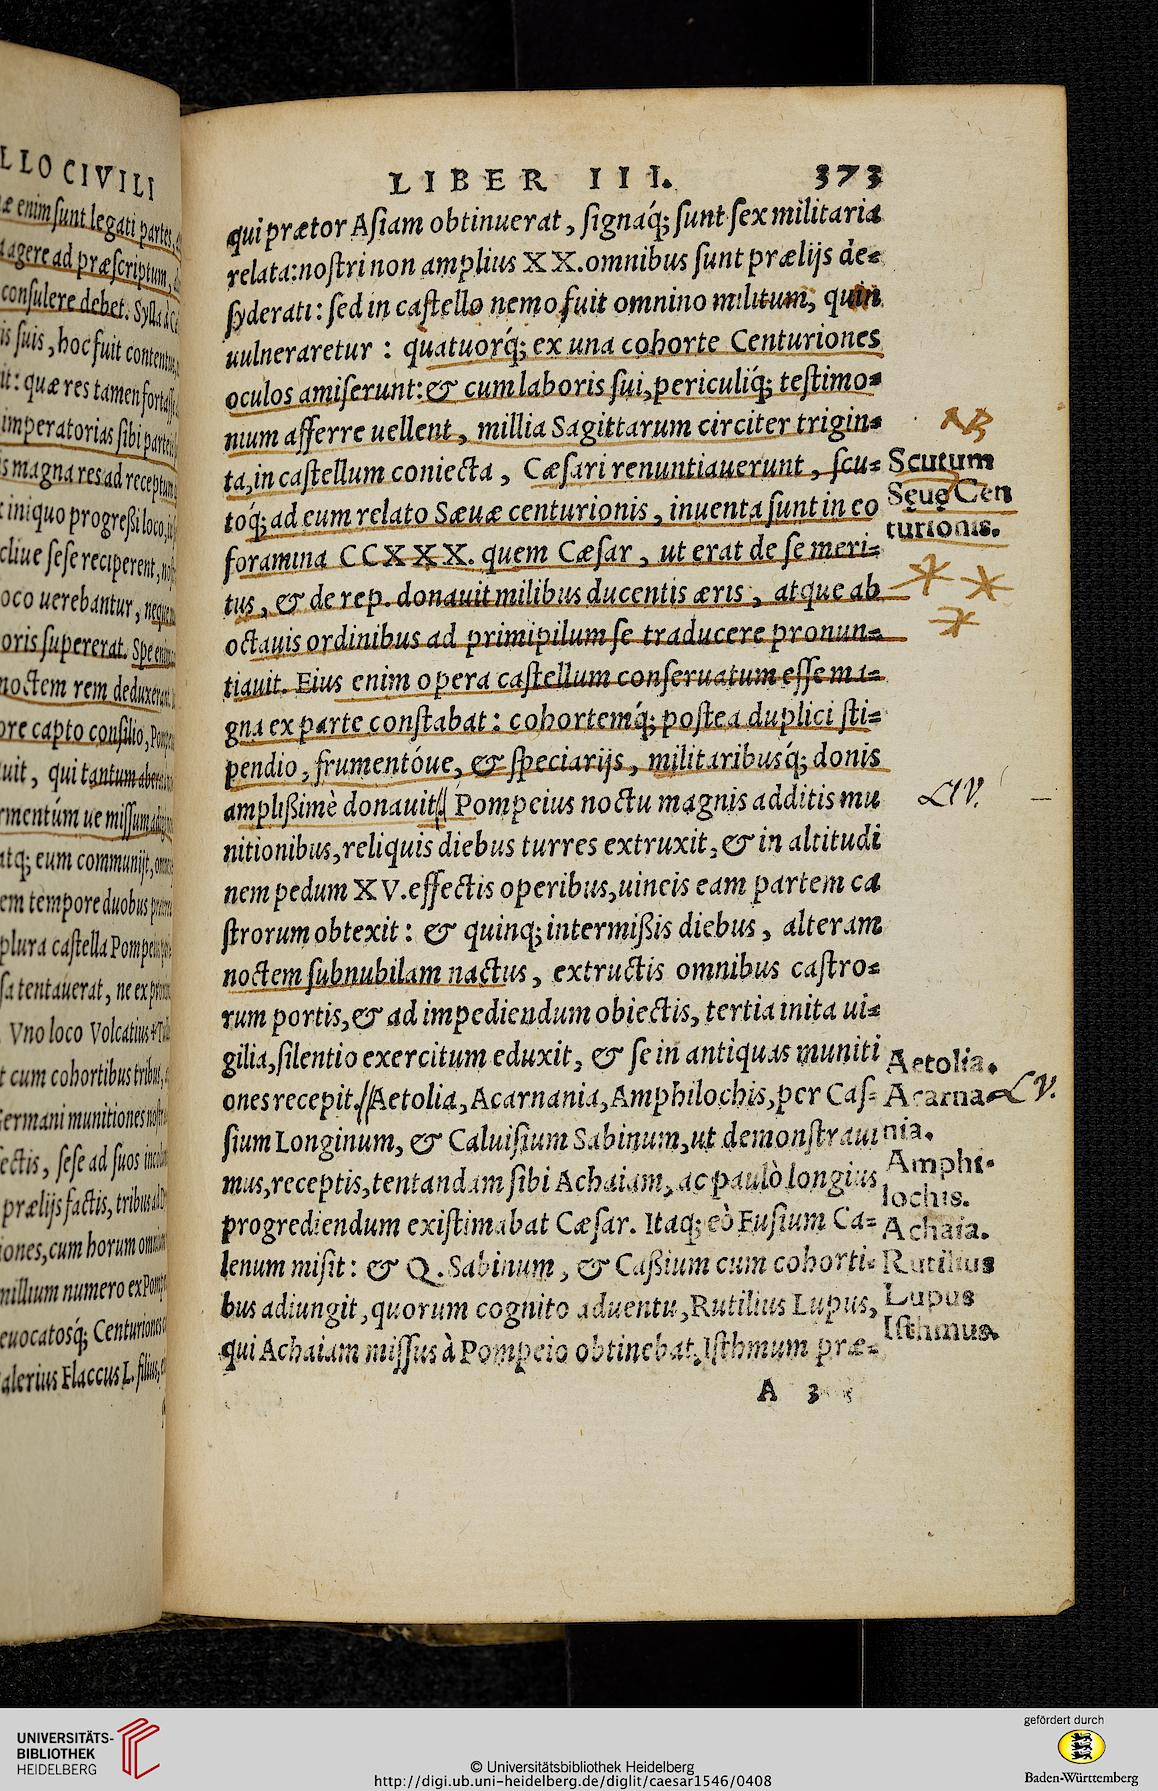 LLO CIVILI
æ enim sunt legati partes,
agere ad præscriptum,
consulere debet. Sylla
is suis, hoc fuit content
it: quæ res tamen fortass
imperatorias sibi partes
s magna res ad receptum
iniquo progreßi loco,
cliue sese reciperent,
oco uerebantur, neque
oris supererat. Spe enim
noctem rem deduxerat
ore capto consilio,
uit, qui tantum aberat
rmentúm ue missum
atq; eum communijt,
em tempore duobus
plura castella Pompeius
sa tentauerat, ne ex
Vno loco Volcatius
t cum cohortibus tribus,
Germani munitiones
ectis, sese ad suos
prælijs factis, tribus
iones, cum horum
millium numero ex
euocatosq́; Centuriones
alerius Flaccus L. filius,
LIBER III. 373
qui prætor Asiam obtinuerat, signaq́; sunt sex militaria
relata: nostri non amplius XX. omnibus sunt prælijs de=
syderati: sed in castello nemo fuit omnino militum, quin
uulneraretur : quatuorq́; ex una cohorte Centuriones
oculos amiserunt: & cum laboris sui, periculiq́; testimo=
nium afferre uellent, millia Sagittarum circiter trigin=
ta, in castellum coniecta, Cæsari renuntiauerunt, scu=
toq́; ad eum relato Sæuæ centurionis, inuenta sunt in eo
foramina CCXXX. quem Cæsar, ut erat de se meri=
tus, & de rep. donauit milibus ducentis æris, atque ab
octauis ordinibus ad primipilum se traducere pronun=
tiauit. Eius enim opera castellum conseruatum esse ma=
gna ex parte constabat: cohortemq́; postea duplici sti=
pendio, frumentóue, & speciarijs, militaribusq́; donis
amplißimè donauit. Pompeius noctu magnis additis mu
nitionibus, reliquis diebus turres extruxit, & in altitudi
nem pedum XV. effectis operibus, uineis eam partem ca
strorum obtexit: & quinq; intermißis diebus, alteram
noctem subnubilam nactus, extructis omnibus castro=
rum portis, & ad impediendum obiectis, tertia inita ui=
gilia, silentio exercitum eduxit, & se in antiquas muniti
ones recepit. Aetolia, Acarnania, Amphilochis, per Cas=
sium Longinum, & Caluisium Sabinum, ut demonstraui
mus, receptis, tentandam sibi Achaiam, ac paulò longius
progrediendum existimabat Cæsar. Itaq; eò Fusium Ca=
lenum misit: & Q. Sabinum, & Caßium cum cohorti=
bus adiungit, quorum cognito aduentu, Rutilius Lupus,
qui Achaiam missus à Pompeio obtinebat, Isthmum præ=
A 3
NB
Scutum
Sęuę Cen
turionis.
LIV.
Aetolia.
Acarna=
LV.
nia.
Amphi=
lochis.
Achaia.
Rutilius
Lupus
Isthmus.
UNIVERSITÄTS-
BIBLIOTHEK
HEIDELBERG
© Universitätsbibliothek Heidelberg
http://digi.ub.uni-heidelberg.de/diglit/caesar1546/0408
gefördert durch
Baden-Württemberg